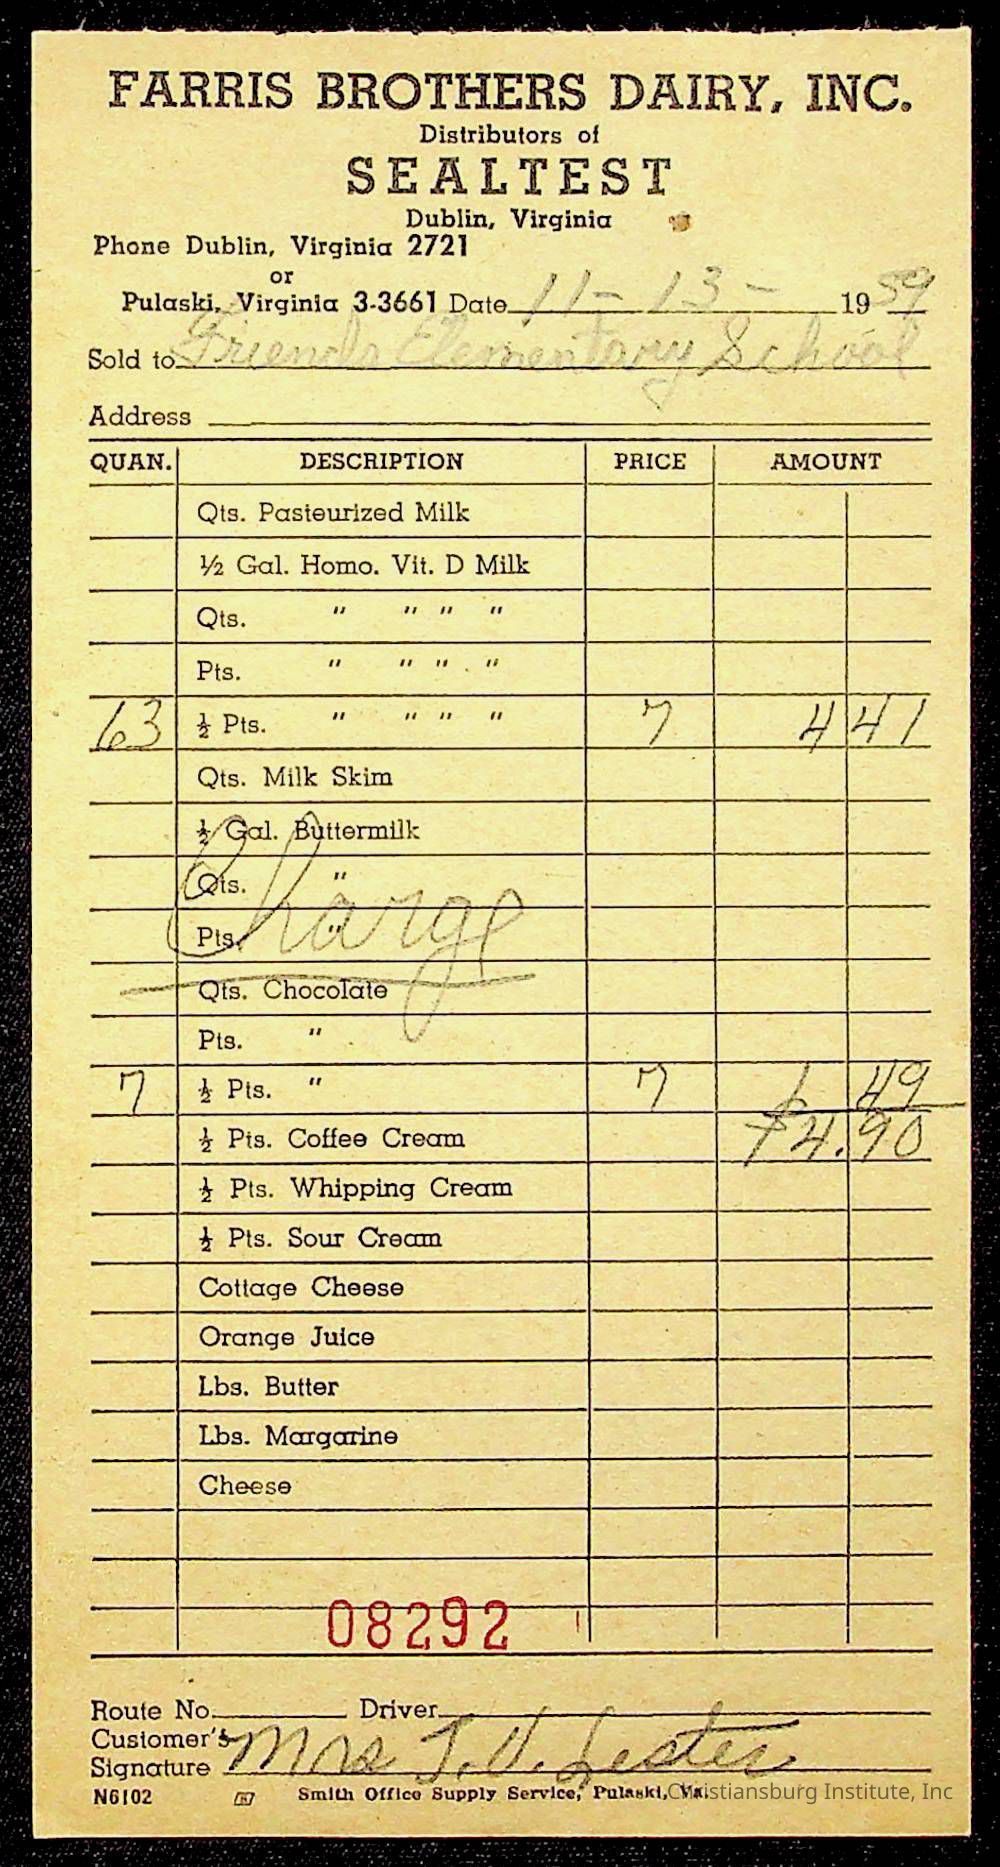 FARRIS BROTHERS DAIRY, INC.
Distributors of
SEALTEST
Dublin, Virginia
Phone Dublin, Virginia 2721
or
Pulaski, Virginia 3-3661 Date 11-13- 1959
Sold to Friends Elementary School
Address
QUAN. DESCRIPTION PRICE AMOUNT
Qts. Pasteurized Milk
½ Gal. Homo. Vit. D Milk
Qts. " " " "
Pts. " " " "
63 ½ Pts. " " " " 7 4 41
Qts. Milk Skim
½ Gal. Buttermilk
Qts. "
Pts. "
Charge
Qts. Chocolate
Pts. "
7 ½ Pts. " 7 49
½ Pts. Coffee Cream $4.90
½ Pts. Whipping Cream
½ Pts. Sour Cream
Cottage Cheese
Orange Juice
Lbs. Butter
Lbs. Margarine
Cheese
08292
Route No. Driver
Customer's
Signature Mrs T. V. Lester
N6102 Smith Office Supply Service, Pulaski, Va.
Christiansburg Institute, Inc